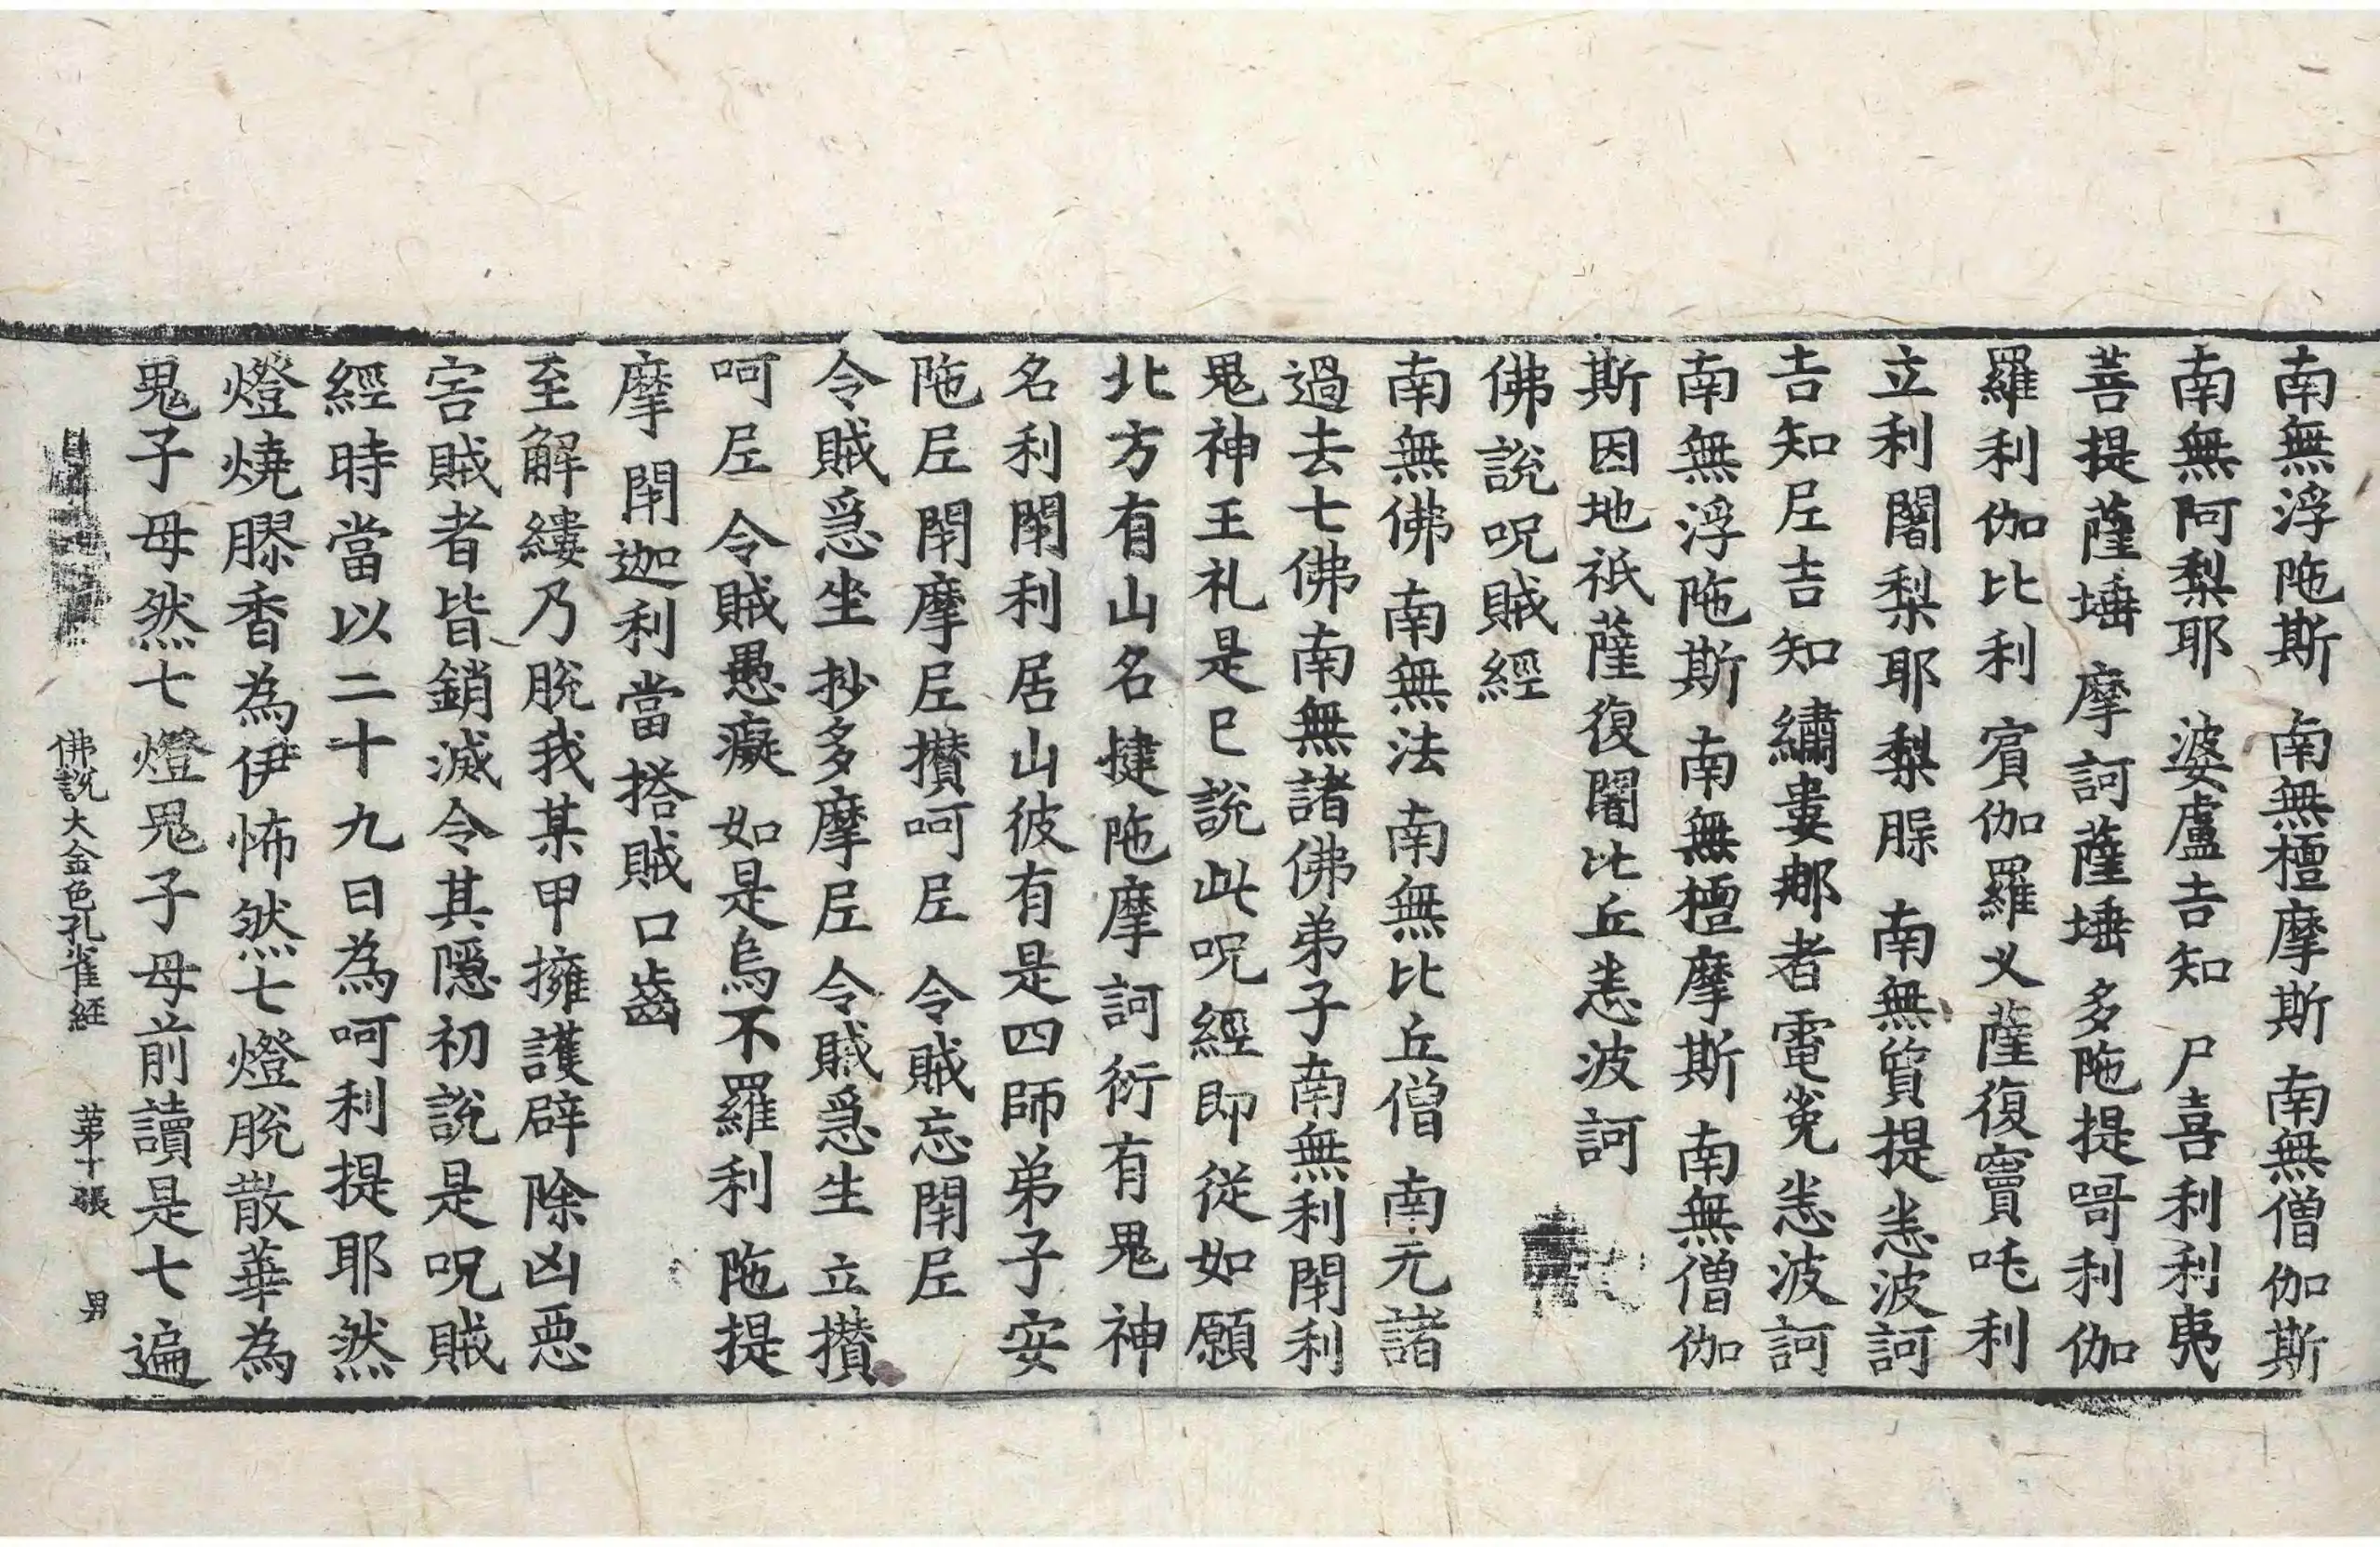 南無浮陁斯 南無檀摩斯 南無僧伽斯
南無阿梨耶 婆盧吉知 尸喜利利夷
菩提薩埵 摩訶薩埵 多陁提哥利伽
羅利伽比利 賓伽羅义薩復竇吒利
立利闍梨耶梨脲 南無質提恙波訶
吉知𡰱吉知繡婁那者電宽恙波訶
南無浮陁斯 南無檀摩斯 南無僧伽
斯因地祇薩復闍比丘恙波訶
佛說呪賊經
南無佛南無法南無比丘僧南元諸
過去七佛南無諸佛弟子南無利閈利
鬼神王礼是巳說此呪經即從如願
北方有山名揵陁摩訶衍有鬼神
名利閈利居山彼有是四師弟子安
陁𡰱閈摩𡰱攅呵𡰱 令賊忘閈𡰱
令賊急坐抄多摩𡰱令賊急生立攅
呵𡰱 令賊愚癡如是烏不羅利陁提
摩閈迦利當搭賊口齒
至解縷乃脫我某甲擁護辟除凶惡
害賊者皆銷滅令其隱初說是呪賊
經時當以二十九日為呵利提耶然
燈燒膠香為伊怖然七燈脫散華為
鬼子母然七燈鬼子母前讀是七遍
佛說大金色孔雀經 第十張 男